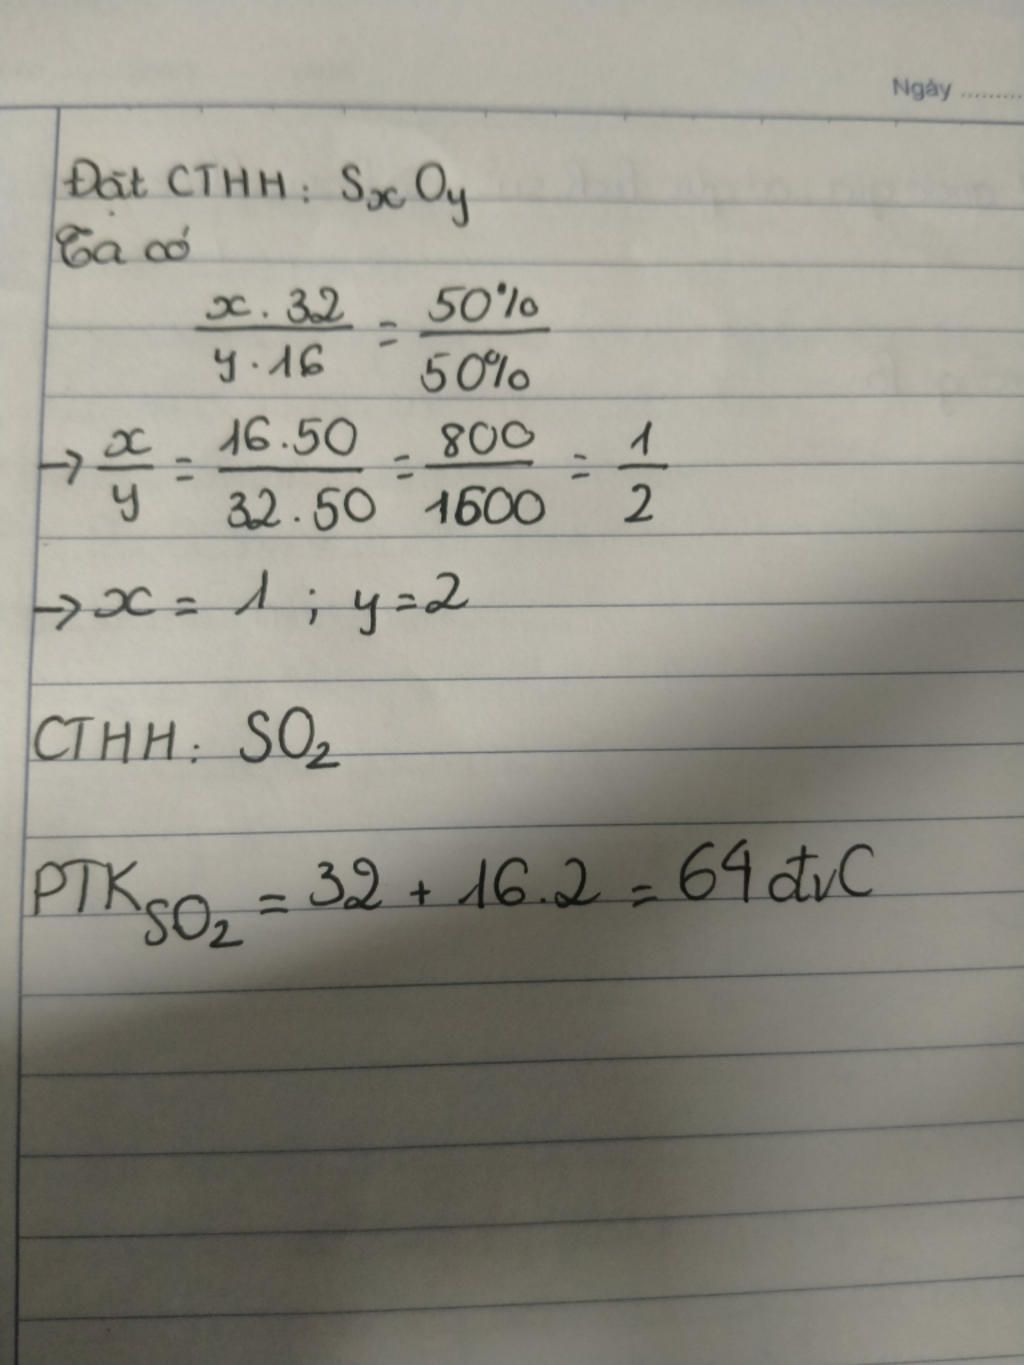 Ngày ..........
Đặt CTHH: SₓOy
Ta có
x . 32 / y . 16 = 50% / 50%
→ x / y = 16.50 / 32.50 = 800 / 1600 = 1 / 2
→ x = 1 ; y = 2
CTHH: SO₂
PTK SO₂ = 32 + 16.2 = 64 đvC